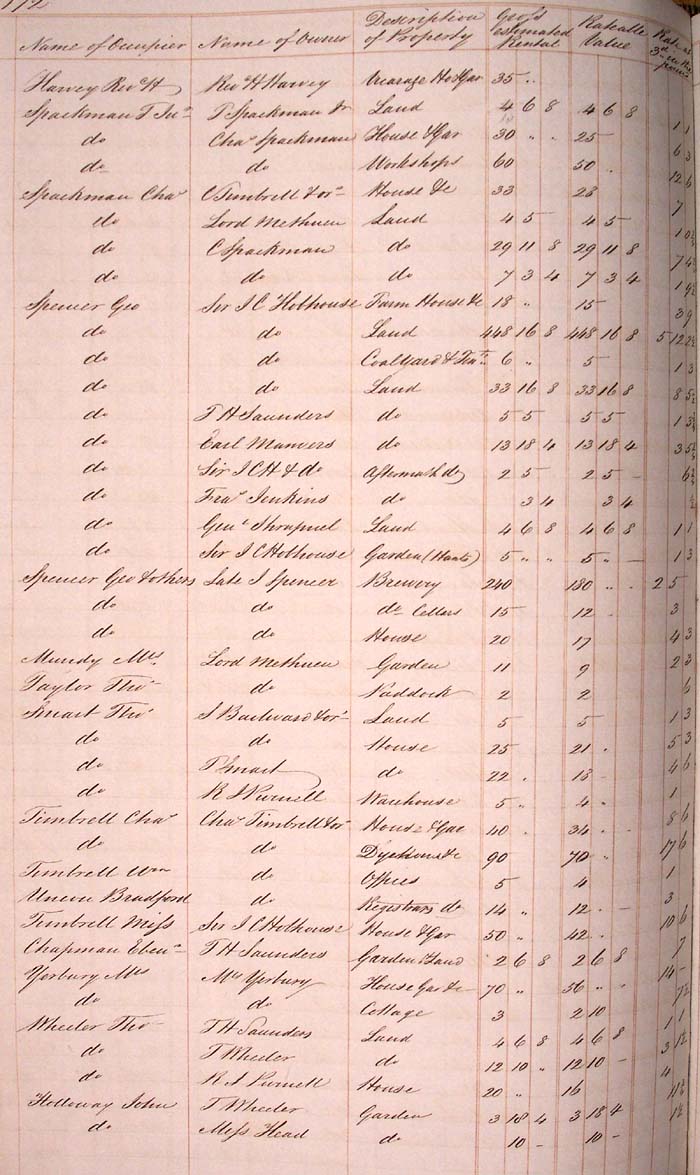 172
Name of Occupier Name of Owner Description of Property Gross estimated Rental Rateable Value Rate at 3d in the pound
Harvey Revd H Revd H Harvey Vicarage Ho & Gar 35 " "
Spackman T Junr T Spackman Jr Land 4 6 8 4 6 8 1 1
do Chas Spackman House & Gar 30 " " 25 6 3
do do Workshops 60 50 12 6
Spackman Chas C Timbrell & ors House &c 33 28 7
do Lord Methuen Land 4 5 4 5 1 0¾
do C Spackman do 29 11 8 29 11 8 7 4¾
do do do 7 3 4 7 3 4 1 9½
Spencer Geo Sir J C Hobhouse Farm House &c 18 " 15 3 9
do do Land 448 16 8 448 16 8 5 12 2½
do do Coalyard & Tent 6 " 5 1 3
do do Land 33 16 8 33 16 8 8 5½
do T H Saunders do 5 5 5 5 1 3¾
do Earl Manvers do 13 18 4 13 18 4 3 5¾
do Sir J C H & do Aftermath do 2 5 2 5 - 6¾
do Fras Jenkins do 3 4 3 4 ½
do Genl Shrapnel Land 4 6 8 4 6 8 1 1
do Sir J C Hobhouse Garden (Hants) 5 " " 5 " - 1 3
Spencer Geo & others Late J Spencer Brewery 240 180 " " 2 5
do do do Cellars 15 12 - 3
do do House 20 17 4 3
Mundy Mrs Lord Methuen Garden 11 9 2 3
Taylor Thos do Paddock 2 2 6
Smart Thos J Bailward & ors Land 5 5 1 3
do do House 25 21 . 5 3
do T Smart do 22 . 18 - 4 6
do R J Purnell Warehouse 5 . 4 . 1
Timbrell Chas Chas Timbrell & ors House & Gar 40 . 34 . 8 6
do do Dyehouse &c 90 70 " 17 6
Timbrell Wm do Offices 5 4 1
Union Bradford do Registrars do 14 " 12 . - 3
Timbrell Miss Sir J C Hobhouse House & Gar 50 " 42 . 10 6
Chapman Ebenr T H Saunders Garden Land 2 6 8 2 6 8 7
Yerbury Mrs Mrs Yerbury House Gar &c 70 " 56 " " 14 -
do do Cottage 3 2 10 7½
Wheeler Thos T H Saunders Land 4 6 8 4 6 8 1 1
do T Wheeler do 12 10 " 12 10 - 3 1½
do R J Purnell House 20 " 16 4
Holloway John T Wheeler Garden 3 18 4 3 18 4 11½
do Miss Head do 10 - 10 - 1½